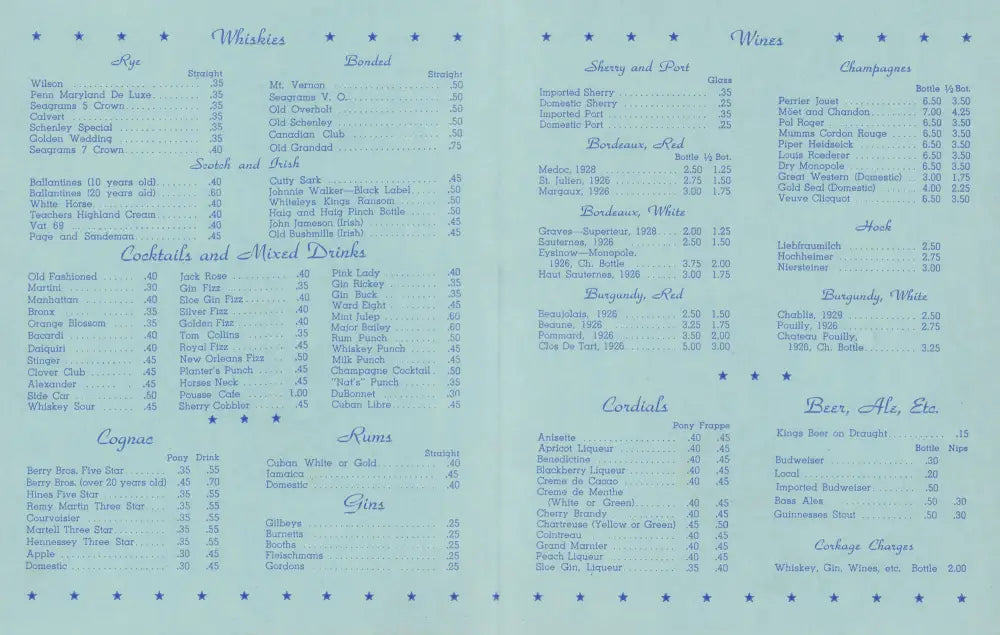 Whiskies
Rye
Straight
Wilson .35
Penn Maryland De Luxe .35
Seagrams 5 Crown .35
Calvert .35
Schenley Special .35
Golden Wedding .35
Seagrams 7 Crown .40
Bonded
Straight
Mt. Vernon .50
Seagrams V. O. .50
Old Overholt .50
Old Schenley .50
Canadian Club .50
Old Grandad .75
Scotch and Irish
Ballantines (10 years old) .40
Ballantines (20 years old) .60
White Horse .40
Teachers Highland Cream .40
Vat 69 .40
Page and Sandeman .45
Cutty Sark .45
Johnnie Walker—Black Label .50
Whiteleys Kings Ransom .50
Haig and Haig Pinch Bottle .50
John Jameson (Irish) .45
Old Bushmills (Irish) .45
Cocktails and Mixed Drinks
Old Fashioned .40
Martini .30
Manhattan .40
Bronx .35
Orange Blossom .35
Bacardi .40
Daiquiri .40
Stinger .45
Clover Club .45
Alexander .45
Side Car .50
Whiskey Sour .45
Jack Rose .40
Gin Fizz .35
Sloe Gin Fizz .40
Silver Fizz .40
Golden Fizz .40
Tom Collins .35
Royal Fizz .45
New Orleans Fizz .50
Planter's Punch .45
Horses Neck .45
Pousse Cafe 1.00
Sherry Cobbler .45
Pink Lady .40
Gin Rickey .35
Gin Buck .35
Ward Eight .45
Mint Julep .60
Major Bailey .60
Rum Punch .50
Whiskey Punch .45
Milk Punch .45
Champagne Cocktail .50
"Nat's" Punch .35
DuBonnet .30
Cuban Libre .45
Cognac
Pony Drink
Berry Bros. Five Star .35 .55
Berry Bros. (over 20 years old) .45 .70
Hines Five Star .35 .55
Remy Martin Three Star .35 .55
Courvoisier .35 .55
Martell Three Star .35 .55
Hennessey Three Star .35 .55
Apple .30 .45
Domestic .30 .45
Rums
Straight
Cuban White or Gold .40
Jamaica .45
Domestic .40
Gins
Gilbeys .25
Burnetts .25
Booths .25
Fleischmans .25
Gordons .25
Wines
Sherry and Port
Glass
Imported Sherry .35
Domestic Sherry .25
Imported Port .35
Domestic Port .25
Bordeaux, Red
Bottle ½ Bot.
Medoc, 1928 2.50 1.25
St. Julien, 1926 2.75 1.50
Margaux, 1926 3.00 1.75
Bordeaux, White
Graves—Superieur, 1928 2.00 1.25
Sauternes, 1926 2.50 1.50
Eysinow—Monopole,
1926, Ch. Bottle 3.75 2.00
Haut Sauternes, 1926 3.00 1.75
Burgundy, Red
Beaujolais, 1926 2.50 1.50
Beaune, 1926 3.25 1.75
Pommard, 1926 3.50 2.00
Clos De Tart, 1926 5.00 3.00
Champagnes
Bottle ½ Bot.
Perrier Jouet 6.50 3.50
Möet and Chandon 7.00 4.25
Pol Roger 6.50 3.50
Mumms Cordon Rouge 6.50 3.50
Piper Heidseick 6.50 3.50
Louis Roederer 6.50 3.50
Dry Monopole 6.50 3.50
Great Western (Domestic) 3.00 1.75
Gold Seal (Domestic) 4.00 2.25
Veuve Clicquot 6.50 3.50
Hock
Liebfraumilch 2.50
Hochheimer 2.75
Niersteiner 3.00
Burgundy, White
Chablis, 1929 2.50
Pouilly, 1926 2.75
Chateau Pouilly,
1926, Ch. Bottle 3.25
Cordials
Pony Frappe
Anisette .40 .45
Apricot Liqueur .40 .45
Benedictine .40 .45
Blackberry Liqueur .40 .45
Creme de Cacao .40 .45
Creme de Menthe
(White or Green) .40 .45
Cherry Brandy .40 .45
Chartreuse (Yellow or Green) .45 .50
Cointreau .40 .45
Grand Marnier .40 .45
Peach Liqueur .40 .45
Sloe Gin, Liqueur .35 .40
Beer, Ale, Etc.
Kings Beer on Draught .15
Bottle Nips
Budweiser .30
Local .20
Imported Budweiser .50
Bass Ales .50 .30
Guinnesses Stout .50 .30
Corkage Charges
Whiskey, Gin, Wines, etc. Bottle 2.00